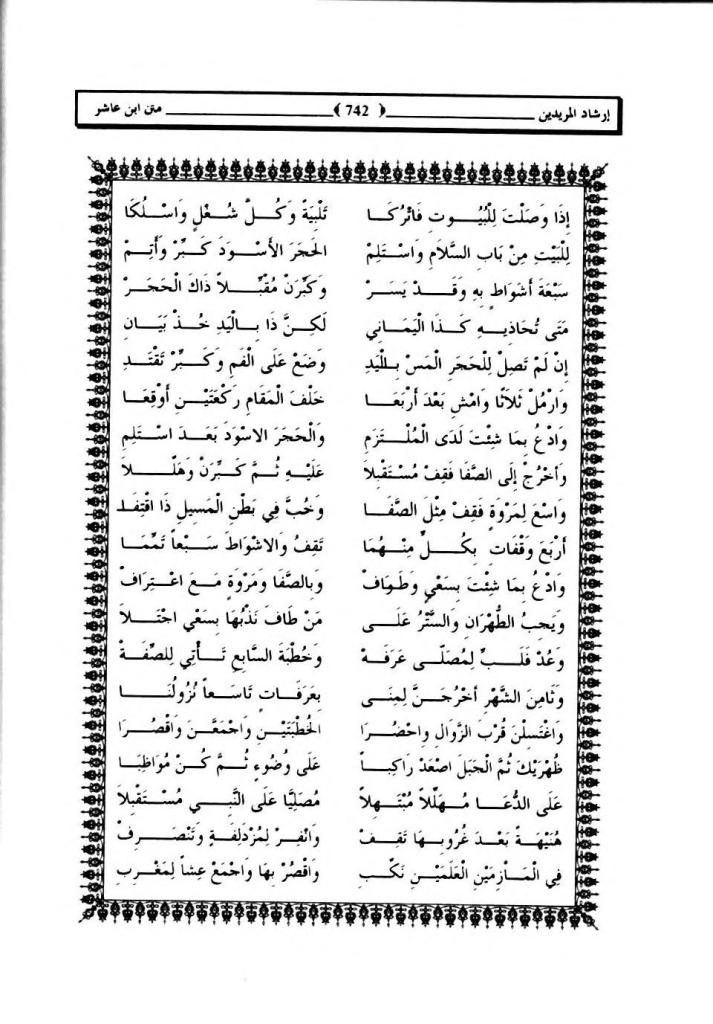 إرشاد المريدين ﴿ 742 ﴾ متن ابن عاشر
إِذَا وَصَلْتَ لِلْبُيُوتِ فَاتْرُكَا تَلْبِيَةً وَكُلَّ شُغْلٍ وَاسْلُكَا
لِلْبَيْتِ مِنْ بَابِ السَّلاَمِ وَاسْتَلِمْ الحَجَرَ الأَسْوَدَ كَبِّرْ وَأَتِمْ
سَبْعَةَ أَشْوَاطٍ بِهِ وَقَدْ يَسَرْ وَكَبِّرَنْ مُقَبِّلاً ذَاكَ الْحَجَرْ
مَتَى تُحَاذِيهِ كَذَا الْيَمَانِي لَكِنَّ ذَا بِالْيَدِ خُذْ بَيَانِ
إِنْ لَمْ تَصِلْ لِلْحَجَرِ الْمَسْ بِالْيَدِ وَضَعْ عَلَى الْفَمِ وَكَبِّرْ تَقْتَدِ
وَارْمُلْ ثَلاَثًا وَامْشِ بَعْدَ أَرْبَعَا خَلْفَ الْمَقَامِ رَكْعَتَيْنِ أَوْقِعَا
وَادْعُ بِمَا شِئْتَ لَدَى الْمُلْتَزَمِ وَالْحَجَرَ الاسْوَدَ بَعْدَ اسْتَلِمِ
وَاخْرُجْ إِلَى الصَّفَا فَقِفْ مُسْتَقْبِلاَ عَلَيْهِ ثُمَّ كَبِّرَنْ وَهَلِّلاَ
وَاسْعَ لِمَرْوَةَ فَقِفْ مِثْلَ الصَّفَا وَخُبَّ فِي بَطْنِ الْمَسِيلِ ذَا اقْتِفَد
أَرْبَعَ وَقْفَاتٍ بِكُلٍّ مِنْهُمَا تَقِفُ وَالاشْوَاطَ سَبْعاً تَمِّمَا
وَادْعُ بِمَا شِئْتَ بِسَعْيٍ وَطَوَافْ وَبِالصَّفَا وَمَرْوَةٍ مَعَ اعْتِرَافْ
وَيَجِبُ الطُّهْرَانِ وَالسَّتْرُ عَلَى مَنْ طَافَ نَدْبُهَا بِسَعْيٍ اجْتَلاَ
وَعُدْ فَلَبِّ لِمُصَلَّى عَرَفَهْ وَخُطْبَةَ السَّابِعِ تَأْتِي لِلصِّفَهْ
وَثَامِنَ الشَّهْرِ أُخْرُجَنَّ لِمِنَى بِعَرَفَاتٍ تَاسِعاً نُزُولُنَا
وَاغْتَسِلَنْ قُرْبَ الزَّوَالِ وَاحْضُرَا الخُطْبَتَيْنِ وَاجْمَعَنَّ وَاقْصُرَا
ظُهْرَيْكَ ثُمَّ الْجَبَلَ اصْعَدْ رَاكِباً عَلَى وُضُوءٍ ثُمَّ كُنْ مُوَاظِبَا
عَلَى الدُّعَا مُهَلِّلاً مُبْتَهِلاً مُصَلِّيًا عَلَى النَّبِي مُسْتَقْبِلاَ
هُنَيْهَةً بَعْدَ غُرُوبِهَا تَقِفْ وَانْفِرْ لِمُزْدَلِفَةٍ وَتَنْصَرِفْ
فِي الْمَأْزِمَيْنِ الْعَلَمَيْنِ نَكِّبِ وَاقْصُرْ بِهَا وَاجْمَعْ عِشاً لِمَغْرِبِ